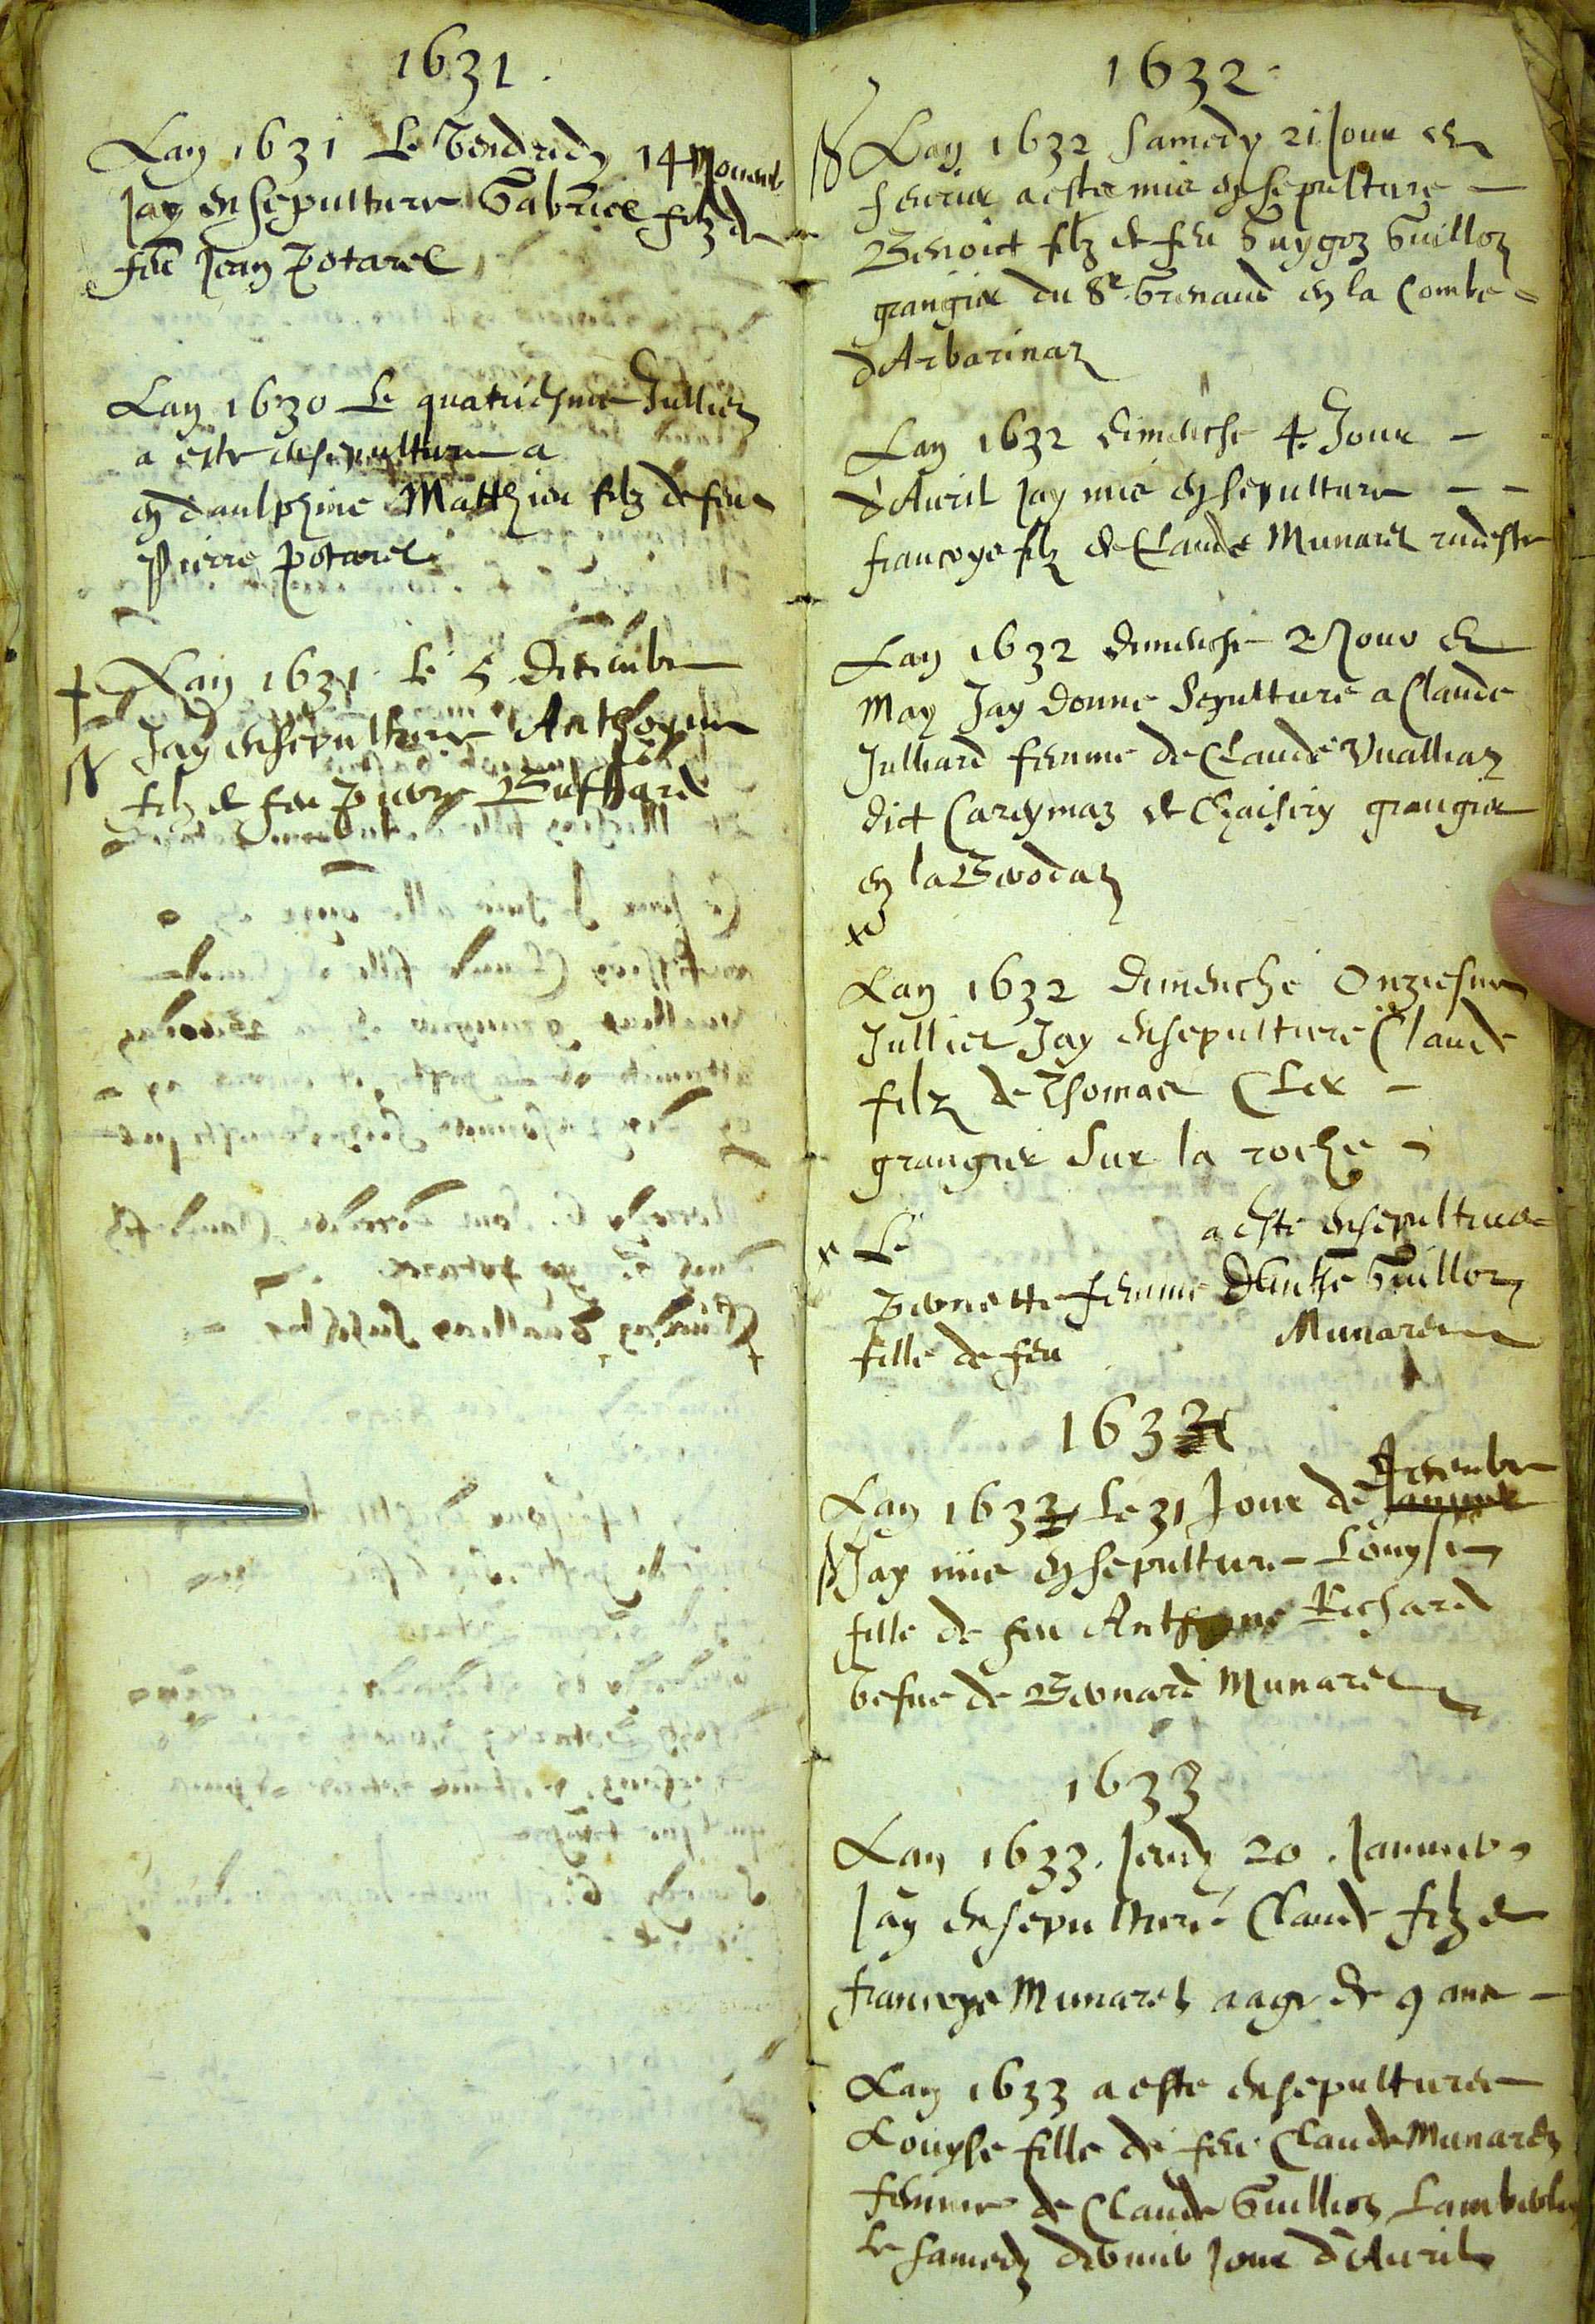 1631.
Lan 1631 Le Vendredy 14 Novemb
Jay ensepulturr Gabriel filz de
feu Jean Potarel
Lan 1630 Le quatriesme Jullien
a este ensepulture a
en daulphine Matthieu filz de feu
Pierre Potarel
Lan 1631 Le 5 Decembre
Jay ensepulture Anthoyne
filz de feu Pierre Buffard
1632
Lan 1632 Samedy 21 Jour de
feurier a este mis en sepulture
Benoict filz de feu Guygoz Guilloz
grangier du Sr Grenaud en la Combe
dArbarinaz
Lan 1632 dimenche 4. Jour
d'Auril Jay mis en sepulture
francoys filz de Claude Munarel
Lan 1632 dimenche 2 Jour de
May Jay donne Sepulture a Claude
Julliard femme de Claude Vualliaz
dict Careymaz de Chaisiry grangier
en la
Lan 1632 dimenche Onziesme
Jullier Jay ensepulture Claude
filz de Thomas Cler
grangier Sur la roche
Le a este ensepulturee
Pernette femme Guilloz
fille de feu Munarel
1632
Lan 1632 Le 31 Jour de Decembre
Jay mis en sepulture Louyse
fille de feu Anthoyne Richard
vefue de Bernard Munarel
1633
Lan 1633. Jeudy 20. Januier
Jay ensepulture Claude filz de
francoys Munarel aage de 9 ans
Lan 1633 a este ensepulturee
Louyse fille de feu Claude Munarel
femme de Claude Guilloz
Le samedy dernier Jour d'Auril